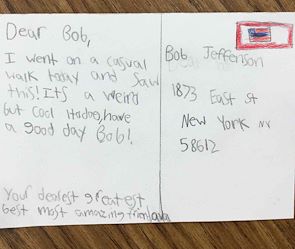 Dear Bob,
I went on a casual
walk today and saw
this! Its a weird
but cool
have
a good day Bob!
Your dearest greatest
best most amazing friend
Bob Jeffenson
1873 East st
New York NY
58612